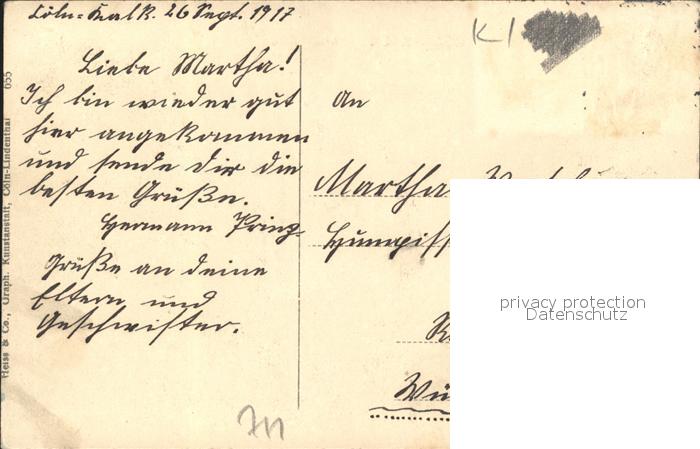 Cöln-Kalk. 26 Sept. 1917
Liebe Martha!
Ich bin wieder gut
hier angekommen
und sende dir die
besten Grüße.
Hermann Prinz.
Grüße an deine
Eltern und
Geschwister.
An
Martha
privacy protection
Datenschutz
Heiss & Co., Graph. Kunstanstalt, Cöln-Lindenthal 655
K1